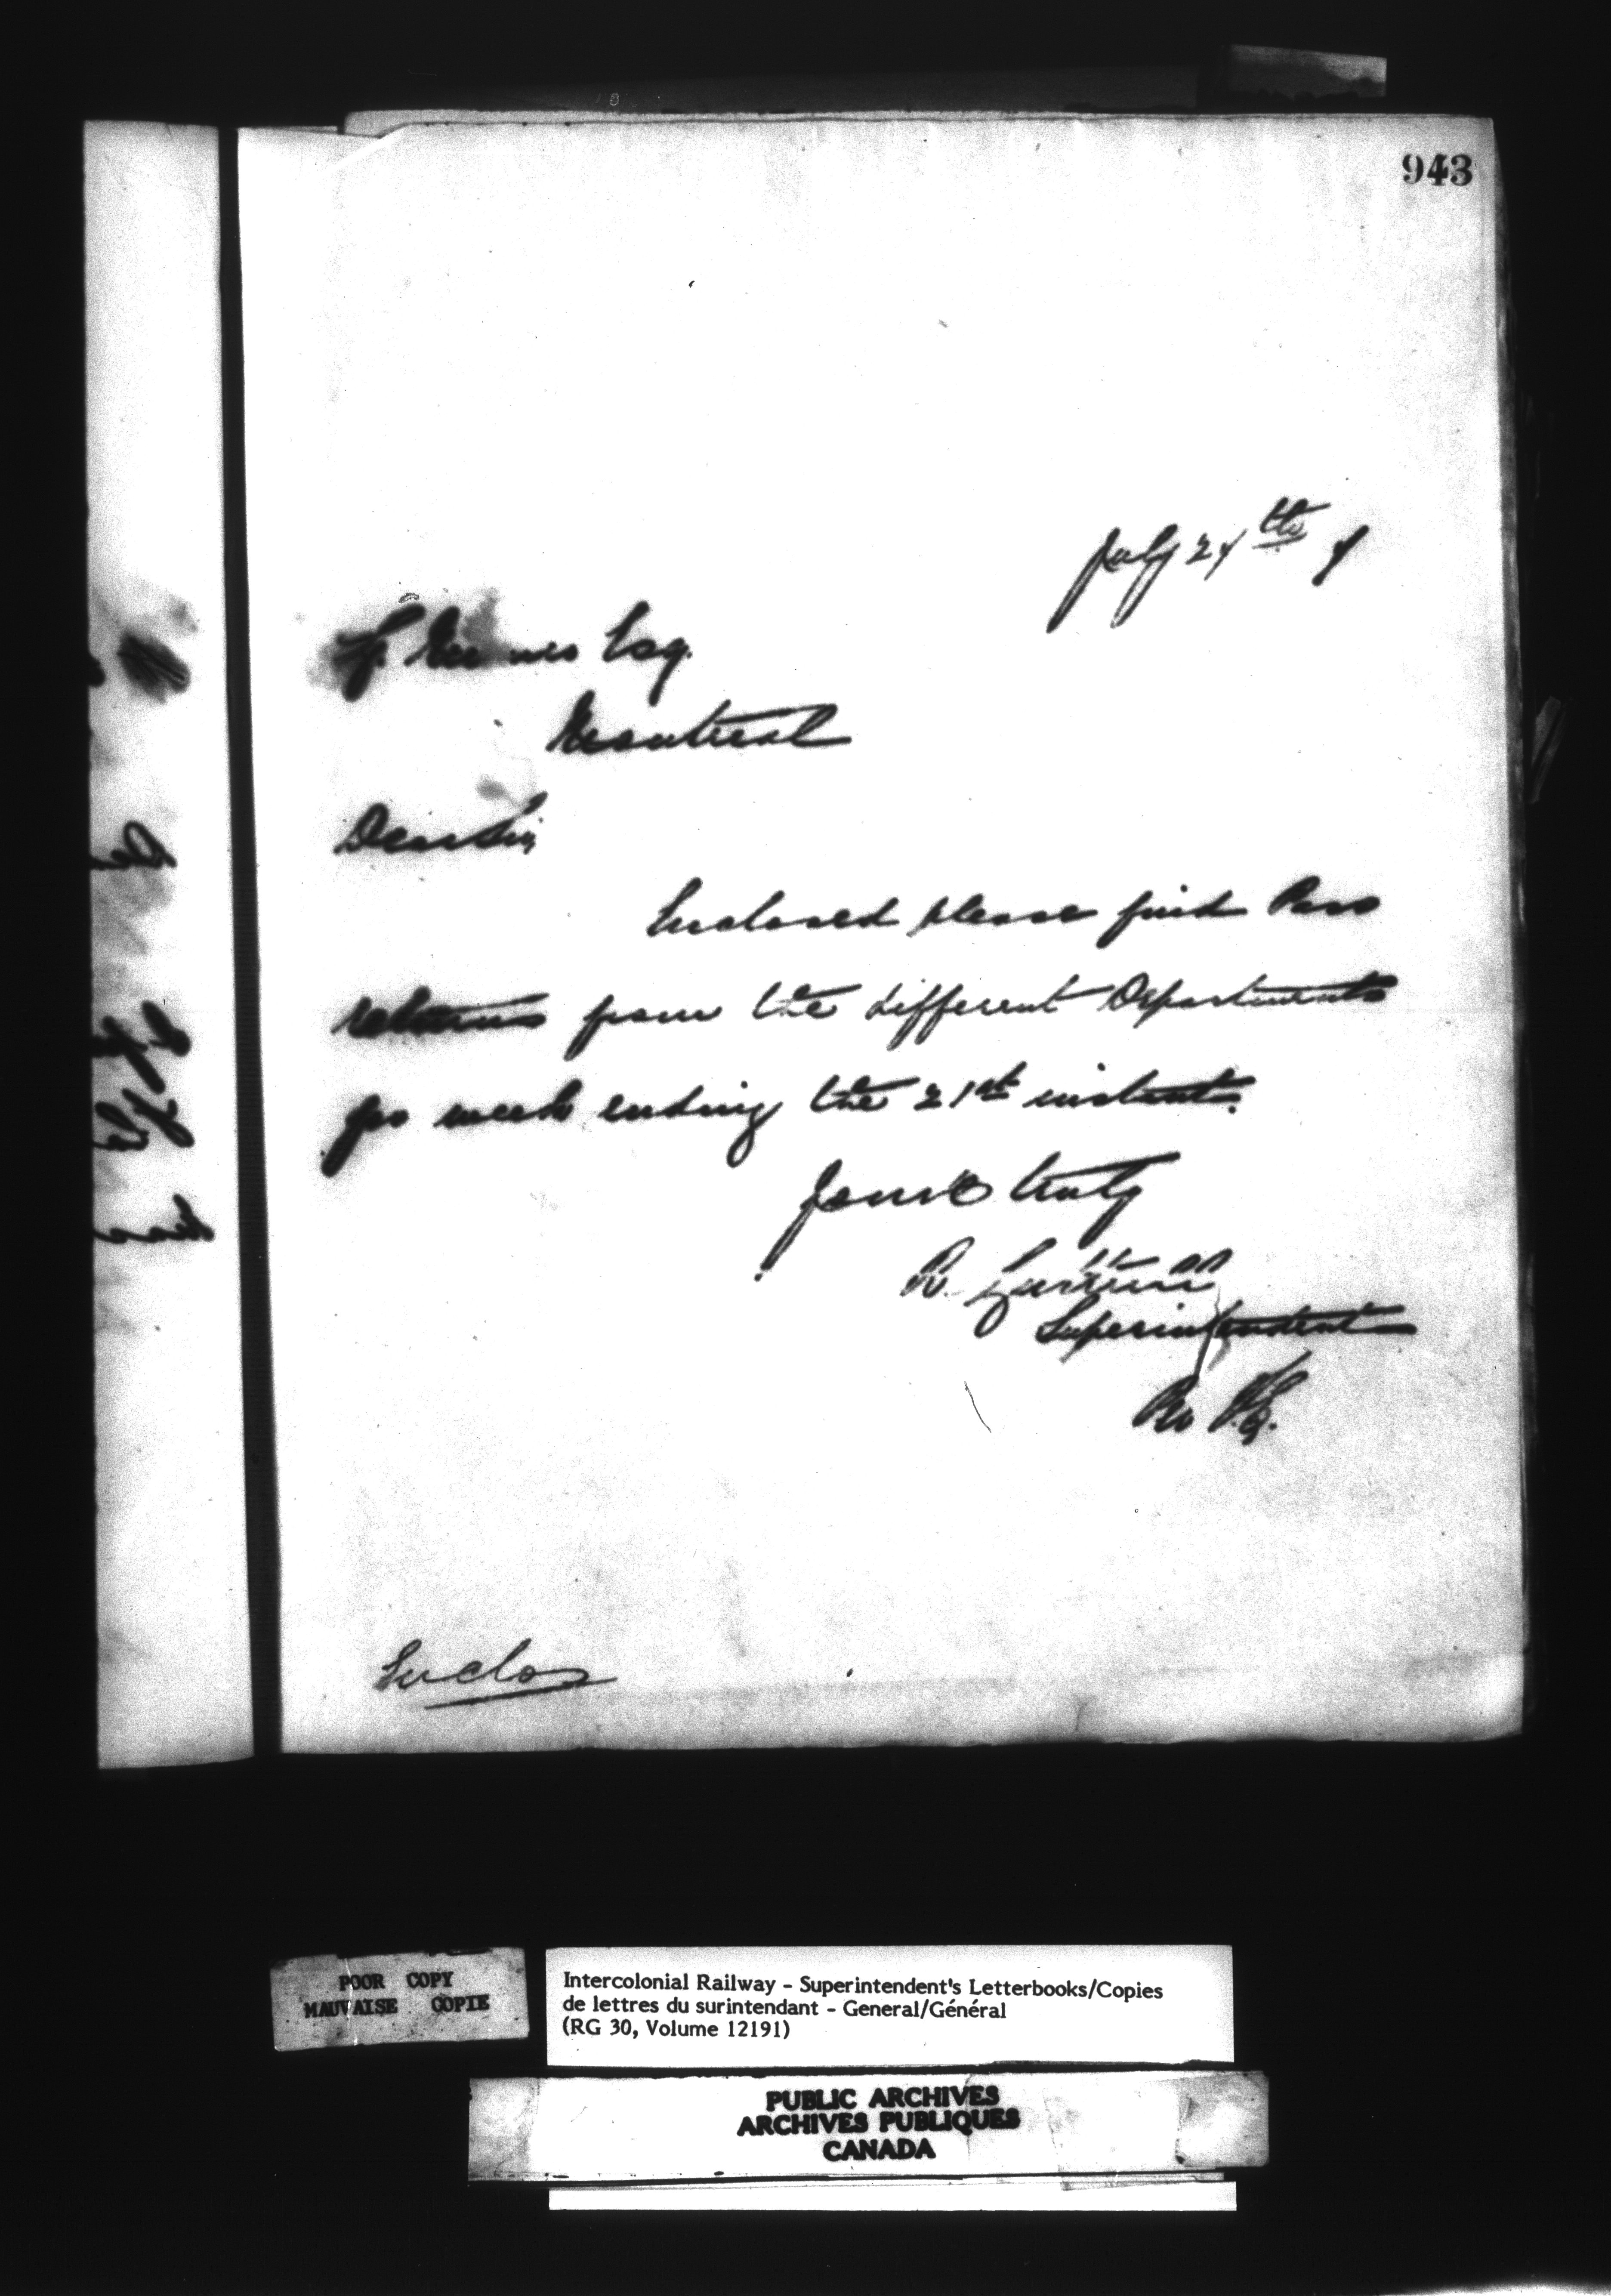 943
July 24th
Esq.
Montreal
Dear Sir,
Enclosed please find Pass
returns from the different Departments
for week ending the 21st instant.
Yours truly
R.
Superintendent
Enclos
POOR COPY
MAUVAISE COPIE
Intercolonial Railway - Superintendent's Letterbooks/Copies
de lettres du surintendant - General/Général
(RG 30, Volume 12191)
PUBLIC ARCHIVES
ARCHIVES PUBLIQUES
CANADA